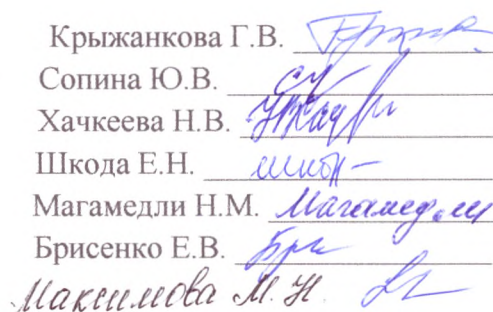 Крыжанкова Г.В.
Сопина Ю.В.
Хачкеева Н.В.
Шкода Е.Н.
Магамедли Н.М. Магамедли
Брисенко Е.В.
Максимова М. Н.